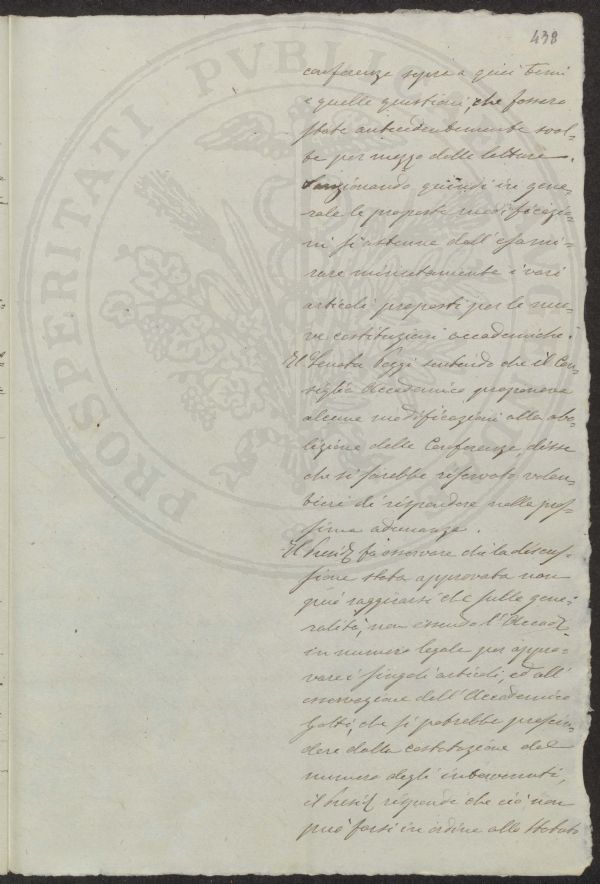 438
conferenze sopra a quei temi
e quelle questioni, che fossero
state antecedentemente svol-
te per mezzo delle letture.
Sanzionando quindi in gene-
rale le proposte modificazio-
ni si astenne dall'esami-
nare minutamente i vari
articoli proposti per le nuo-
ve costituzioni accademiche.
Il Senat Pozzi sentendo che il Con-
siglio Accademico proponeva
alcune modificazioni alla abo-
lizione delle Conferenze disse
che si sarebbe riservato volen-
tieri di rispondere nella pros-
sima adunanza.
Il Presid fa osservare che la discus-
sione stata approvata non
può raggirarsi che sulle gene-
ralità, non essendo l'Accad
in numero legale per appro-
vare i singoli articoli, ed all'
osservazione dell'Accademico
Gatti, che si potrebbe prescin-
dere dalla constatazione del
numero degli intervenuti,
il Presid rispondi che ciò non
può farsi in ordine allo Statuto
PROSPERITATI PVBLICAE